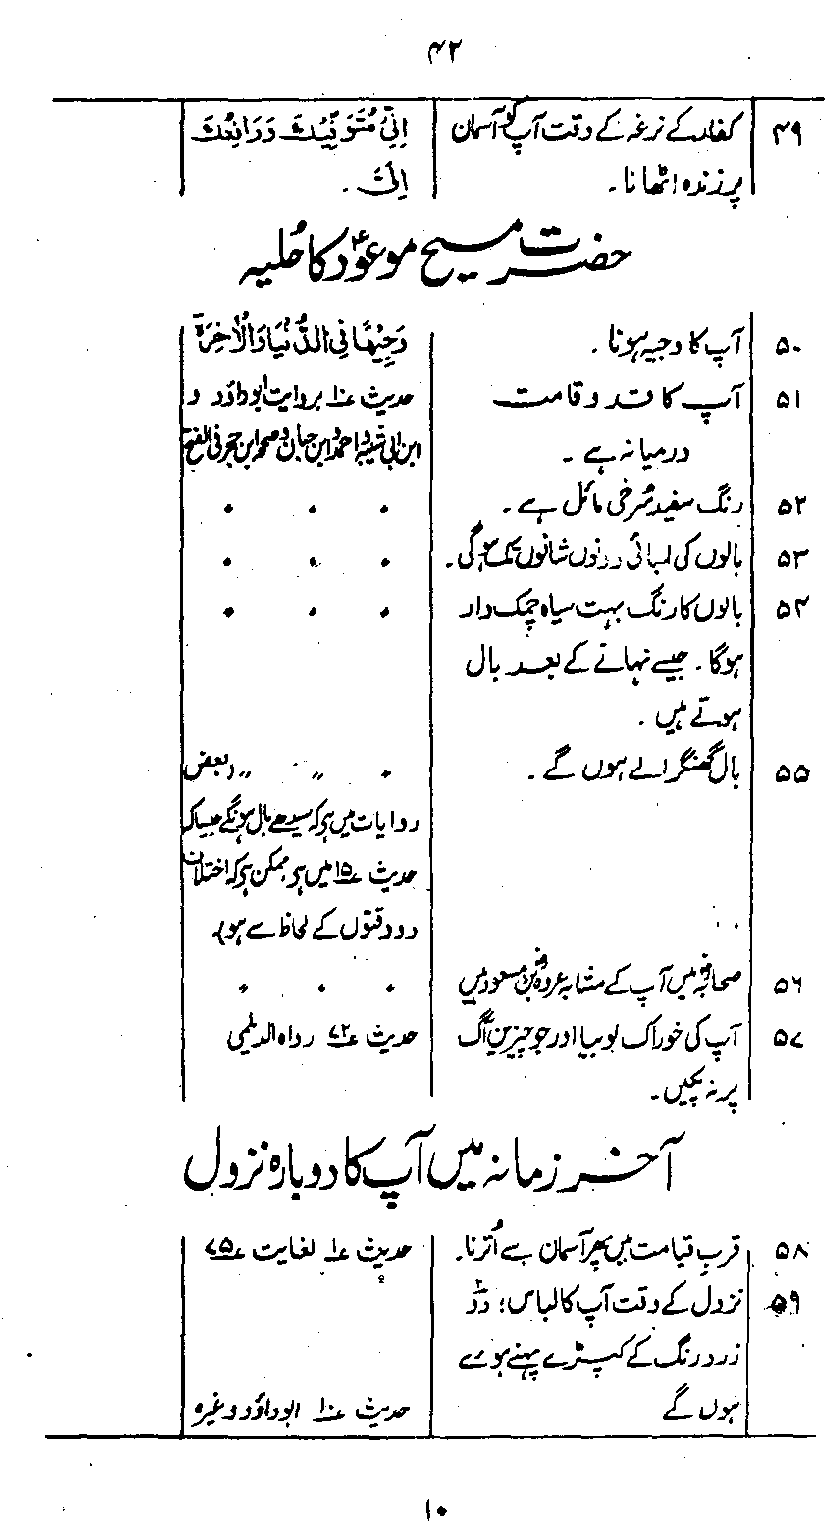 ۴۲
۴۹ کفار کے نرغہ کے وقت آپ کو آسمان اِنِّیْ مُتَوَفِّیْکَ وَرَافِعُکَ
پر زندہ اٹھانا۔ اِلَیَّ ۔
حضرت مسیح موعودؑ کا حُلیہ
۵۰ آپ کا وجیہ ہونا ۔ وَجِیْهًا فِی الدُّنْیَا وَالْاٰخِرَةِ
۵۱ آپ کا قد و قامت حدیث ۱۰ بروایت ابوداؤد و
درمیانہ ہے ۔ ابن ابی شیبہ و احمد و ابن حبان و صححہ ابن حجر فی الفتح
۵۲ رنگ سفید سُرخی مائل ہے ۔ ٠ ٠ ٠
۵۳ بالوں کی لمبائی دونوں شانوں تک ہوگی ۔ ٠ ٠ ٠
۵۴ بالوں کا رنگ بہت سیاہ چمک دار ٠ ٠ ٠
ہوگا ۔ جیسے نہانے کے بعد بال
ہوتے ہیں ۔
۵۵ بال گھنگرالے ہوں گے ۔ ٠ 〃 〃 (بعض
روایات میں ہی کہ سیدھے بال ہونگے جیساکہ
حدیث ۱۵ میں ہی ممکن ہی کہ اختلاف
دو وقتوں کے لحاظ سے ہو)
۵۶ صحابہؓ میں آپ کے مشابہ عروہؓ بن مسعود ہیں ٠ ٠ ٠
۵۷ آپ کی خوراک لوبیا اور جو چیزیں آگ حدیث ۷۲ رواہ الدیلمی
پر نہ پکیں ۔
آخر زمانہ میں آپ کا دوبارہ نزول
۵۸ قرب قیامت میں پھر آسمان سے اُترنا ۔ حدیث ۱ لغایت ۷۵
۵۹ نزول کے وقت آپ کا لباس؛ دو
زرد رنگ کے کپڑے پہنے ہوئے
ہوں گے حدیث ۱۰ ابوداؤد وغیرہ
۱۰